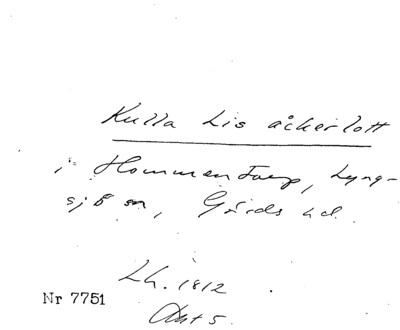 Kulla Lis åckerlott
i Hommentorp, Lyng-
sjö sn, Gärds hd.
Lh. 1812
Nr 7751
Akt 5.